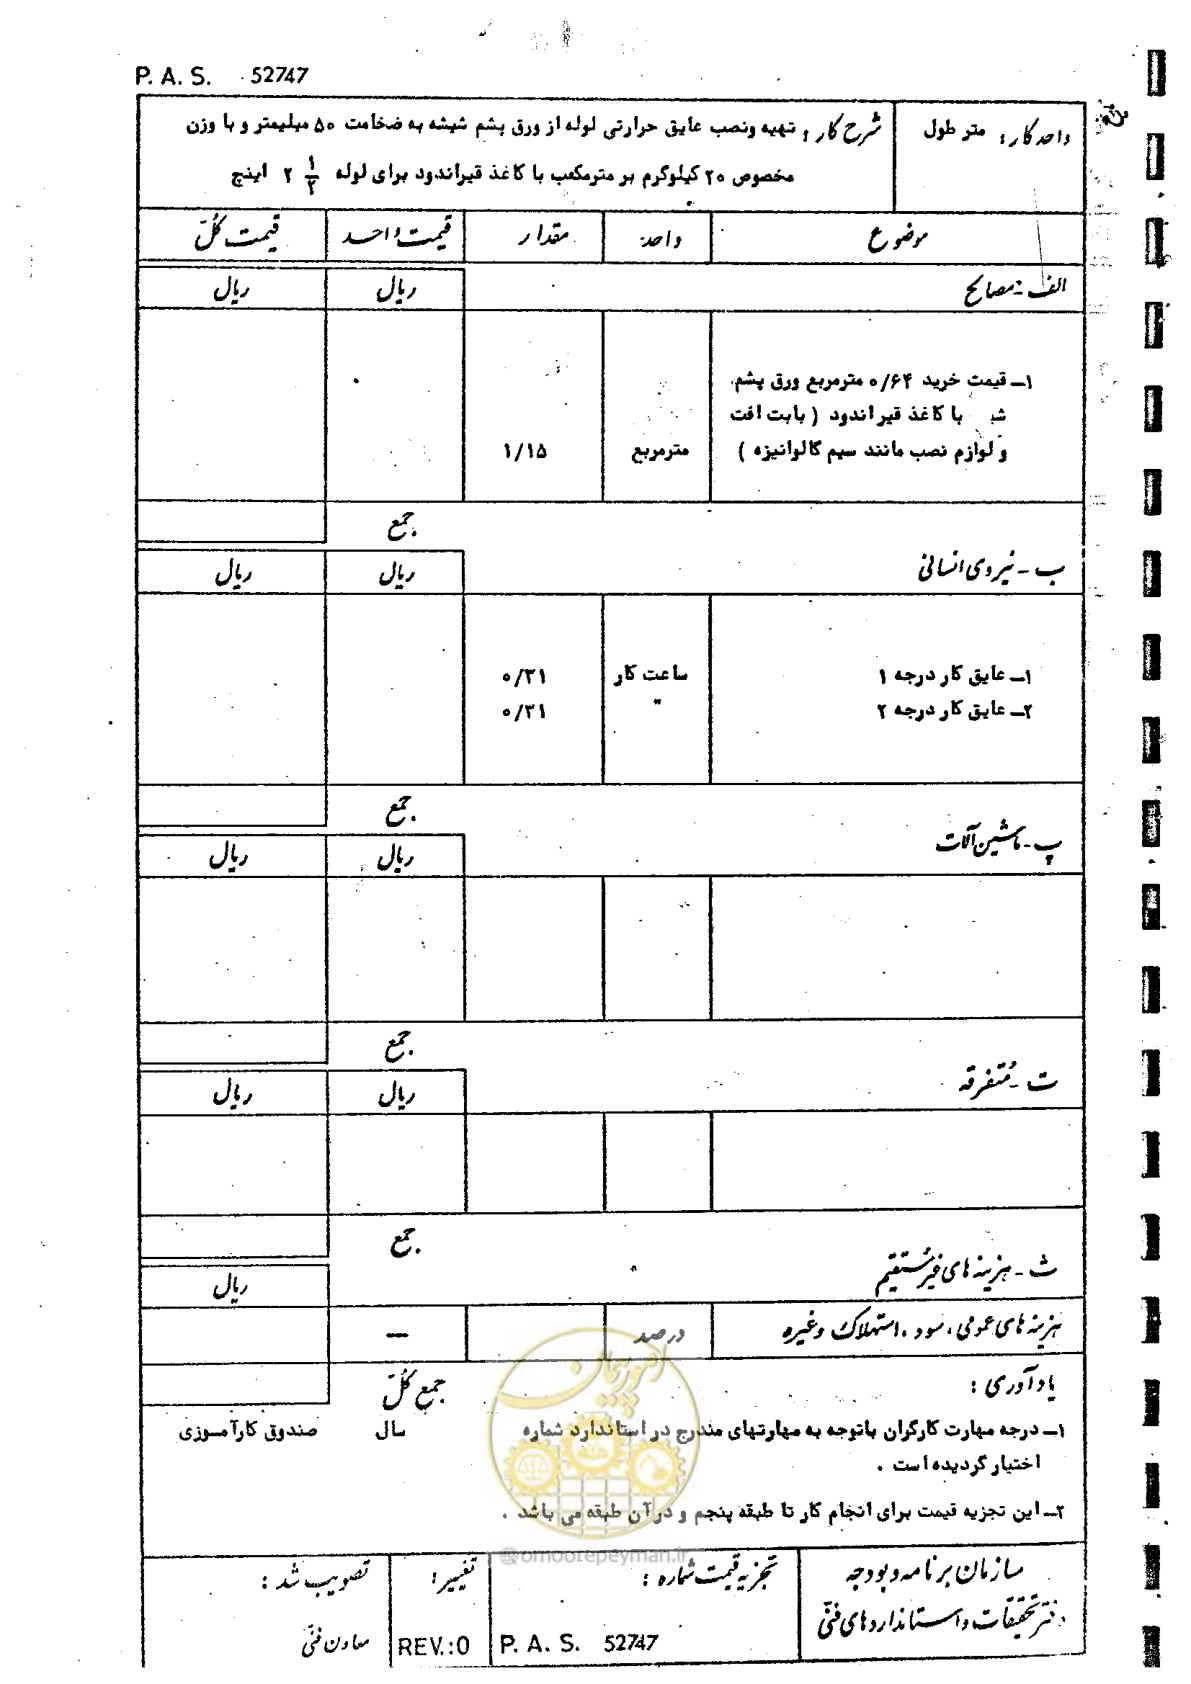 P. A. S. 52747
واحد کار : متر طول
شرح کار : تهیه ونصب عایق حرارتی لوله از ورق پشم شیشه به ضخامت ۵۰ میلیمتر و با وزن
مخصوص ۲۰ کیلوگرم بر مترمکعب با کاغذ قیراندود برای لوله ۲ ۱/۲ اینچ
موضوع واحد مقدار قیمت واحد قیمت کُلّ
الف - مصالح ریال ریال
۱ـ قیمت خرید ۰/۶۴ مترمربع ورق پشم
با کاغذ قیراندود ( بابت افت
و لوازم نصب مانند سیم گالوانیزه ) مترمربع ۱/۱۵
جمع
ب - نیروی انسانی ریال ریال
۱ـ عایق کار درجه ۱ ساعت کار ۰/۲۱
۲ـ عایق کار درجه ۲ " ۰/۲۱
جمع
پ - ماشین آلات ریال ریال
جمع
ت - مُتفرقه ریال ریال
جمع
ث - هزینه های غیرمُستقیم ریال
هزینه های عمومی ، سود ، استهلاک وغیره درصد —
جمع کُلّ
یادآوری :
۱ـ درجه مهارت کارگران باتوجه به مهارتهای مندرج در استاندارد شماره سال صندوق کارآموزی
اختیار گردیده است .
۲ـ این تجزیه قیمت برای انجام کار تا طبقه پنجم و درآن طبقه می باشد .
امور پیمان
@omoorepeyman.ir
سازمان برنامه وبودجه تجزیه قیمت شماره : تغییر : تصویب شد :
دفتر تحقیقات و استانداردهای فنّی P. A. S. 52747 REV.:0 معاون فنّی